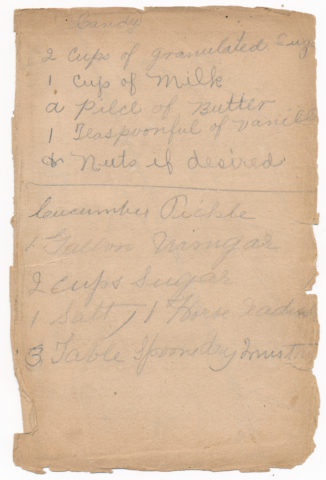 Candy
2 Cups of granulated Sug
1 Cup of Milk
a Piece of Butter
1 Teaspoonful of Vanilla
& Nuts if desired
Cucumber Pickle
1 Gallon Vinegar
2 Cups Sugar
1 Salt, 1 Horse Radish
3 Table Spoon dry Mustard